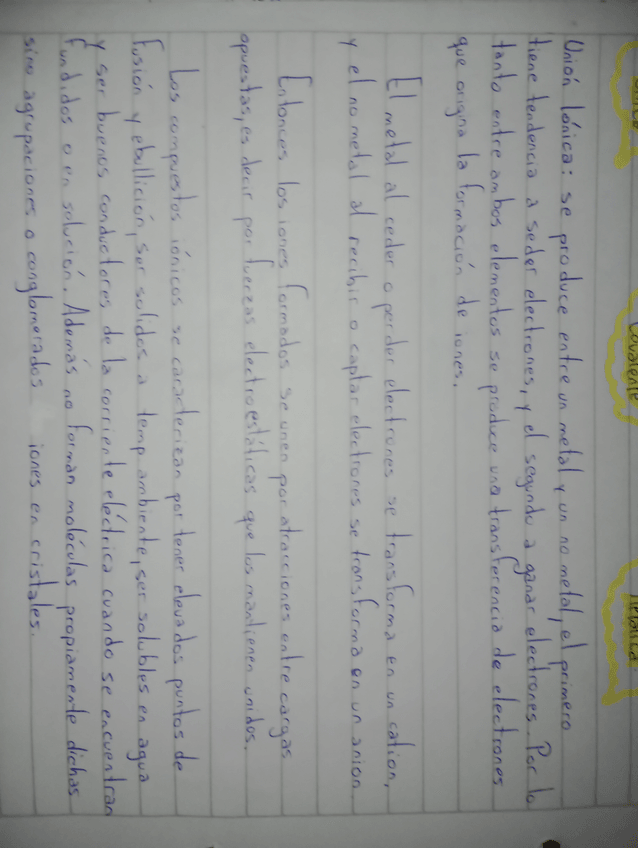 Covalente
Unión Iónica: se produce entre un metal y un no metal, el primero
tiene tendencia a seder electrones, y el segundo a ganar electrones. Por lo
tanto entre ambos elementos se produce una transferencia de electrones
que origina la formación de iones.
El metal al ceder o perder electrones se transforma en un catión,
y el no metal al recibir o captar electrones se transforma en un anion.
Entonces los iones formados se unen por atracciones entre cargas
opuestas, es decir por fuerzas electroestáticas que los mantienen unidos.
Los compuestos iónicos se caracterizan por tener elevados puntos de
fusión y ebullición, ser solidos a temp ambiente, ser solubles en agua
y ser buenos conductores de la corriente eléctrica cuando se encuentran
fundidos o en solución. Además no forman moléculas propiamente dichas
sino agrupaciones o conglomerados iones en cristales.